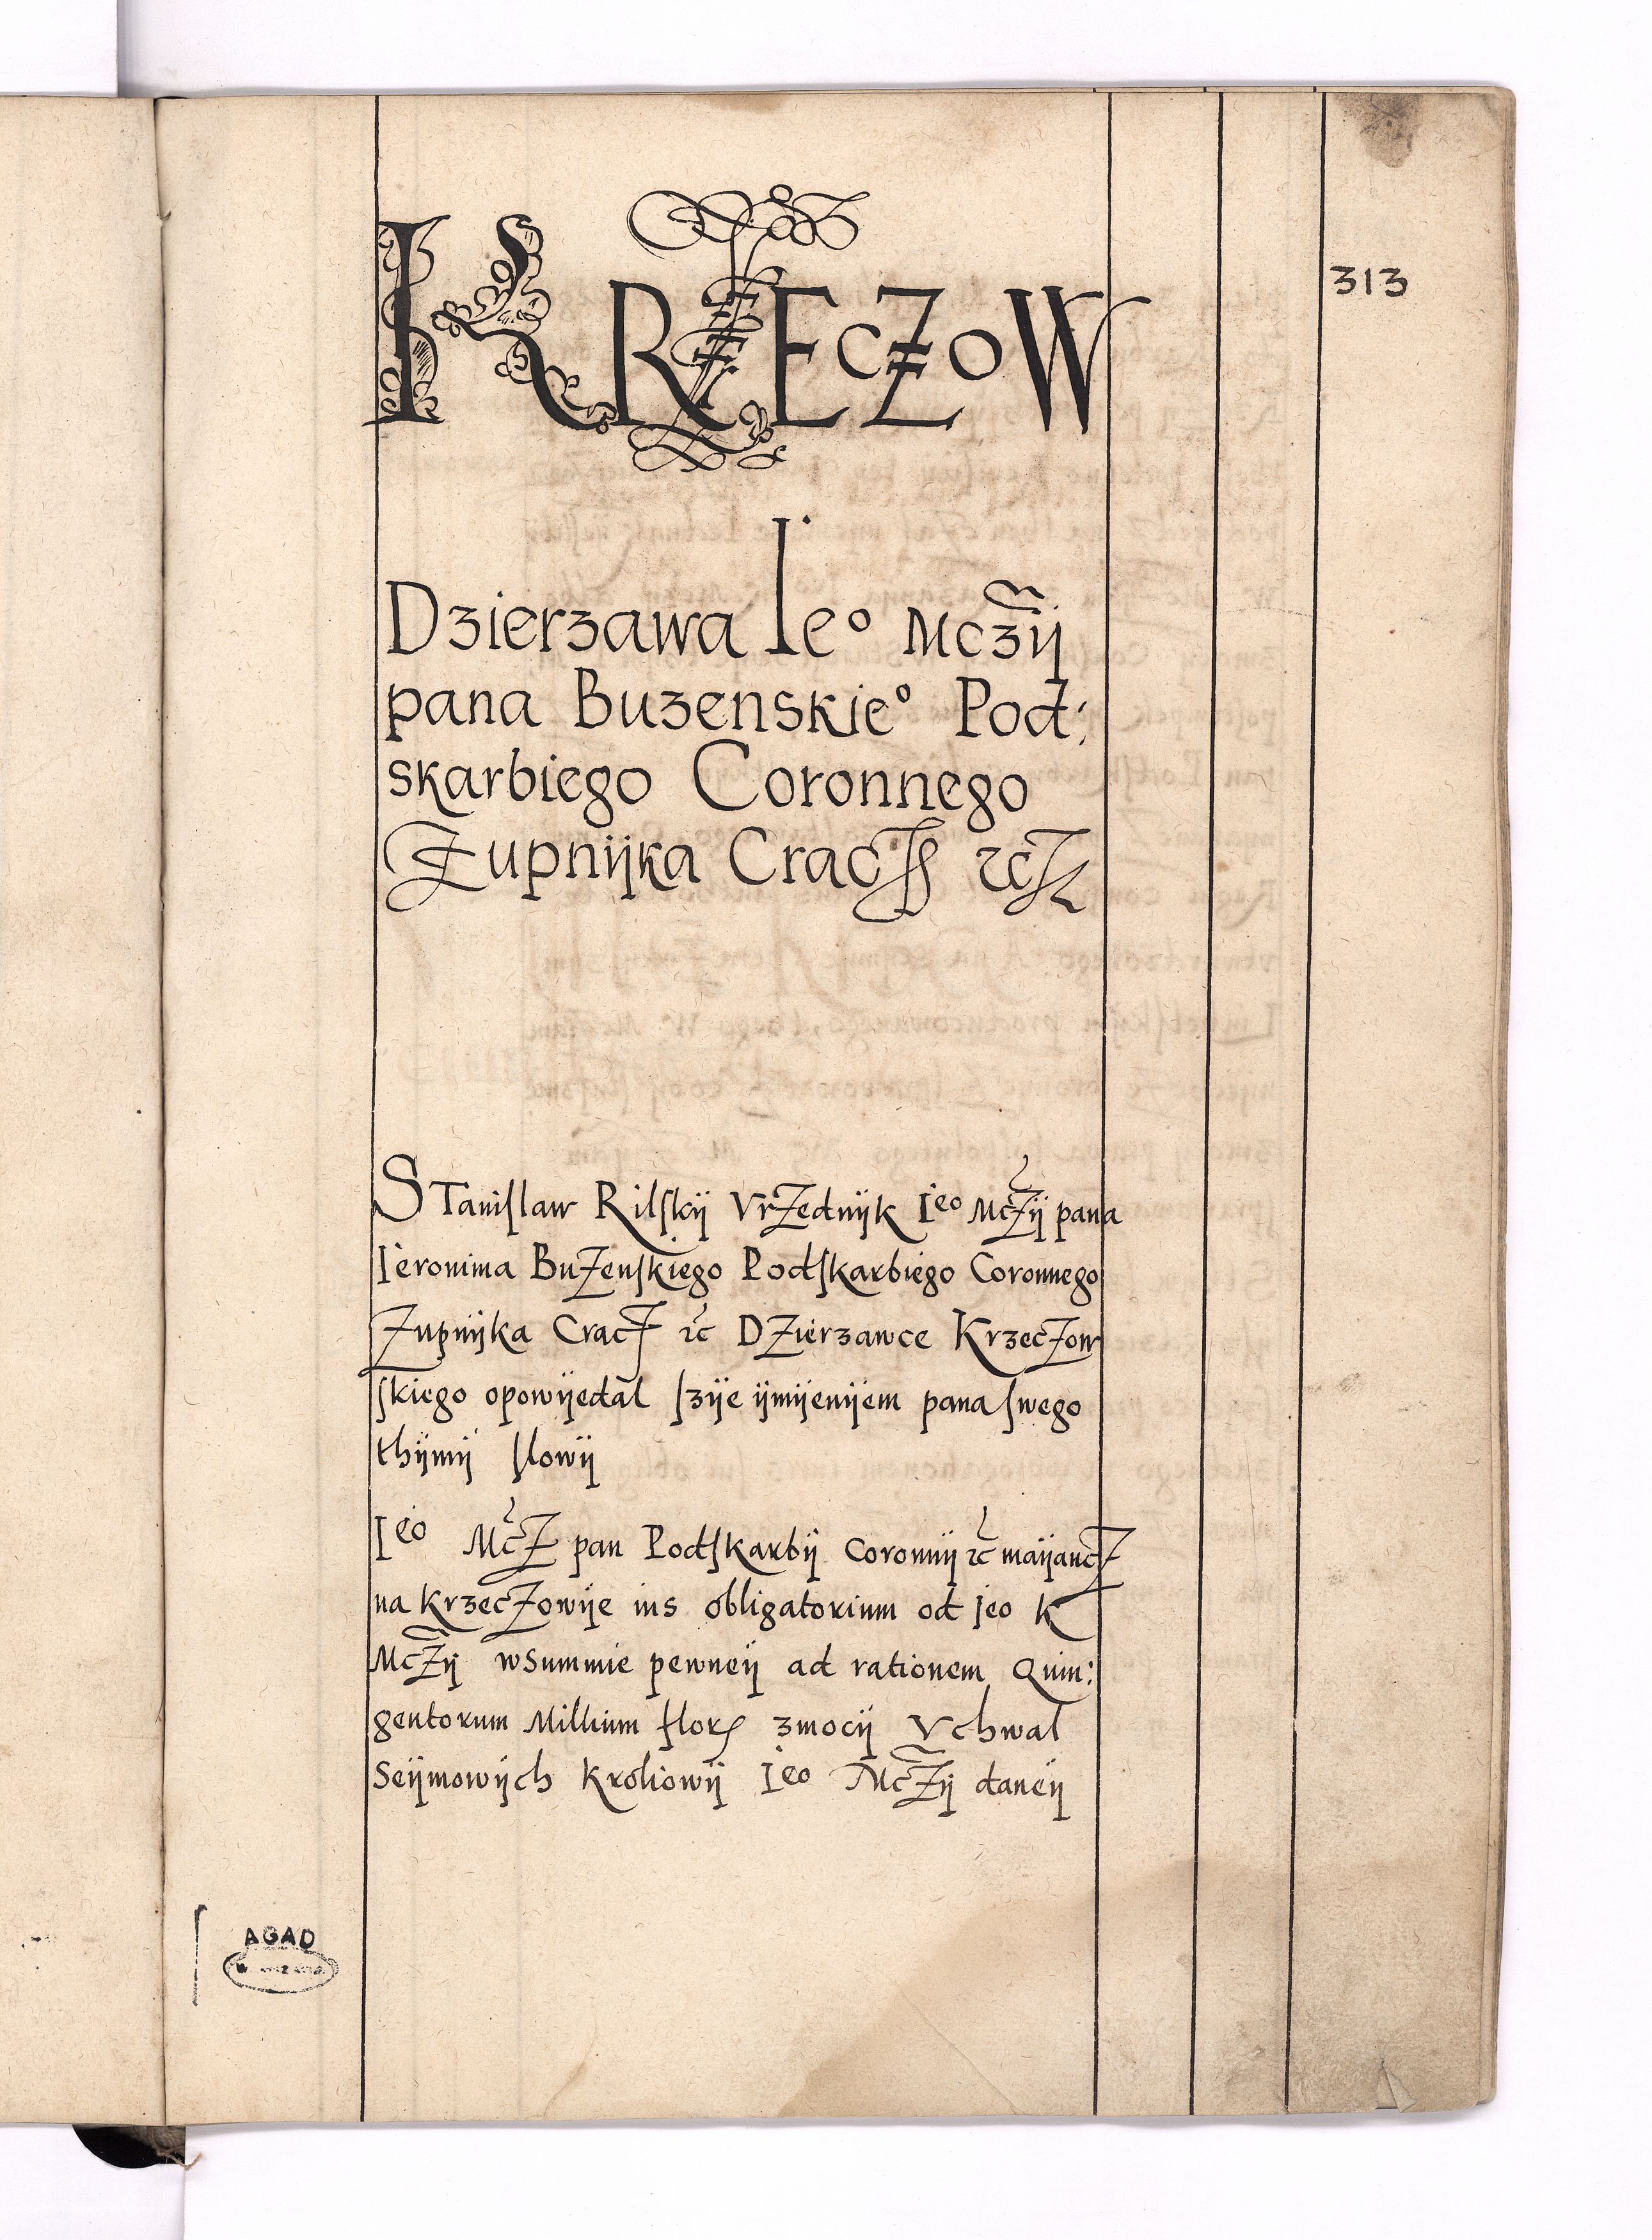 313
KRZECZOW
Dzierzawa Ieo Mczÿ
pana Buzenskieo Pod:
skarbiego Coronnego
Zupnÿka Cracz rcz
STaniſlaw Rilſkÿ VrZednÿk Ieo MċZÿ pana
Ieronima BuZenſkiego Podſkarbiego Coronnego
Zupnÿka CracZ rc DZierzawce KrzecZow
ſkiego opowÿedal ſzÿe ÿmÿenÿem pana ſwego
thÿmÿ ſlowÿ
Ieo McZ pan Podſkarbÿ Coronnÿ rc maÿancZ
na KrzecZowÿe ius obligatorium od Ieo K
McZÿ wSummie pewneÿ ad rationem Quin:
gentorum Millium flor zmocÿ Vchwal
Seÿmowÿch Kroliowÿ Ieo McZÿ daneÿ
AGAD